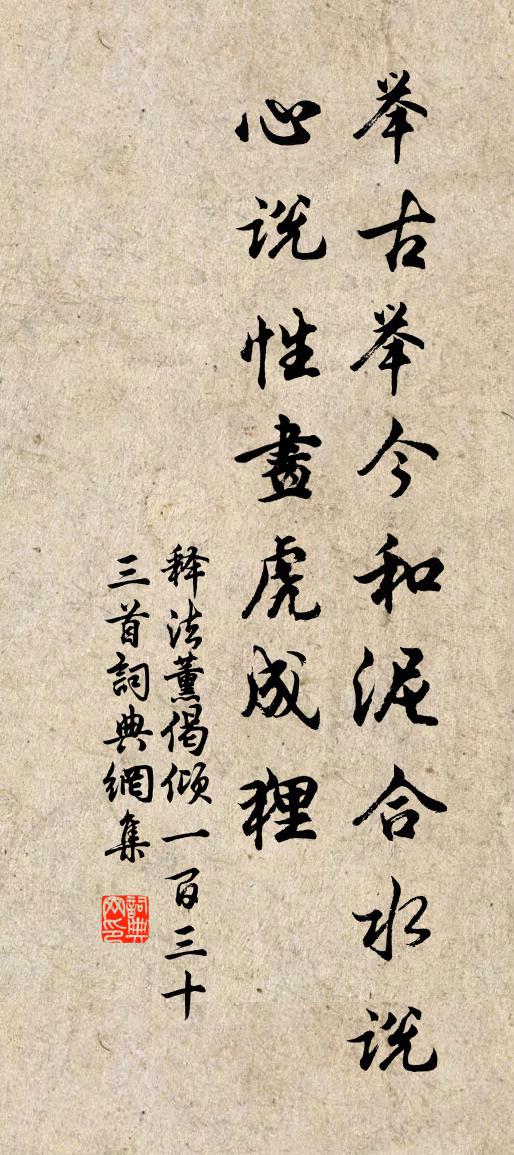 举古举今和泥合水说
心说性畫虎成狸
释法薰偈倾一百三十
三首詞典網集
詞典
网印